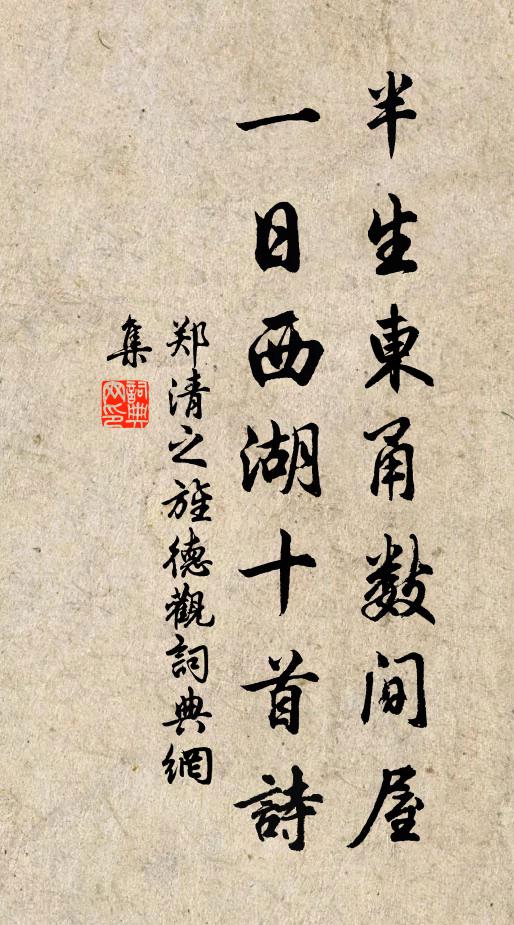 半生東甬數間屋
一日西湖十首詩
郑清之旌德觀詞典網
集
詞典網印